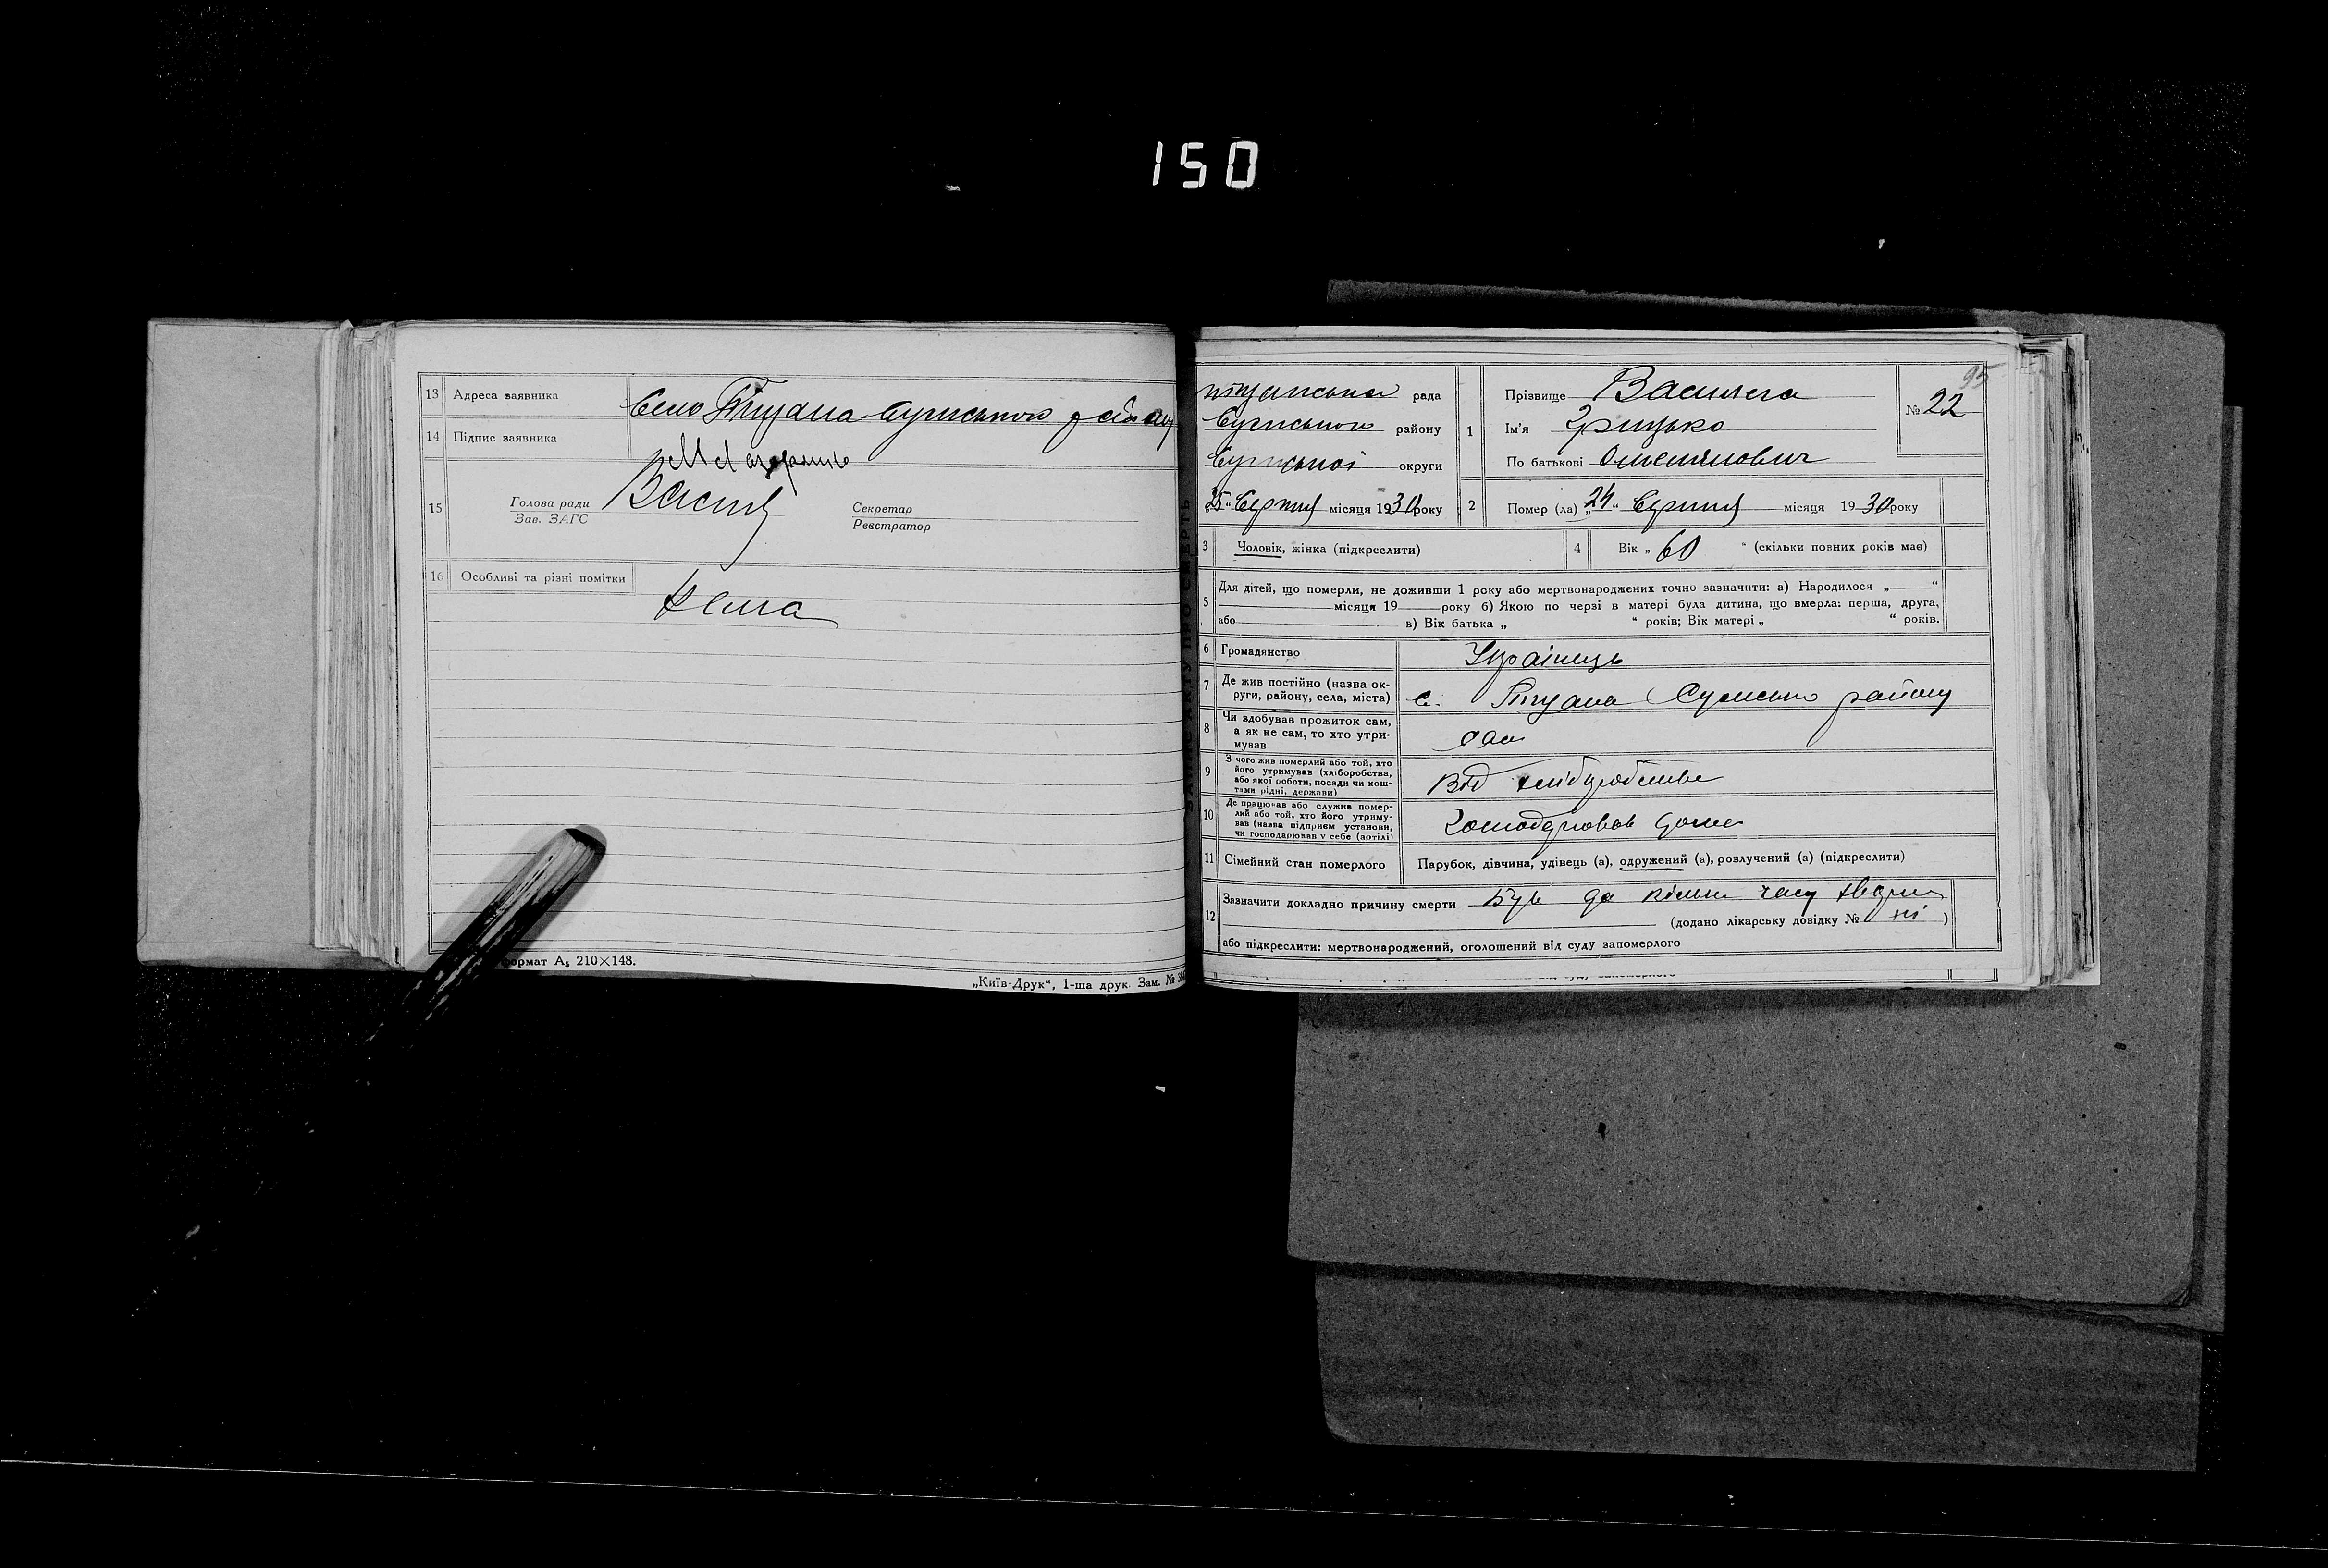 150
13 Адреса заявника Село Піщана Сумського району
14 Підпис заявника
15 Голова ради
Зав. ЗАГС
Секретар
Реєстратор
16 Особливі та різні помітки
Нема
формат А5 210×148.
„Київ-Друк“, 1-ша друк. Зам. №
95
піщанська рада
Сумського району
Сумської округи
25 “ Серпня місяця 1930 року
1 Прізвище Василега
Ім'я Грицько
По батькові Омелянович
№ 22
2 Помер (ла) „ 24 “ Серпня місяця 1930 року
3 Чоловік, жінка (підкреслити)
4 Вік „ 60 “ (скільки повних років має)
5 Для дітей, що померли, не доживши 1 року або мертвонароджених точно зазначити: а) Народилося „ “
місяця 19 року б) Якою по черзі в матері була дитина, що вмерла: перша, друга,
або в) Вік батька „ “ років; Вік матері „ “ років.
6 Громадянство Українець
7 Де жив постійно (назва ок-
руги, району, села, міста) с. Піщана Сумсько району
8 Чи здобував прожиток сам,
а як не сам, то хто утри-
мував
сам
9 З чого жив померлий або той, хто
його утримував (хліборобства,
або якої роботи, посади чи кош-
тами рідні, держави)
Від
10 Де працював або служив помер-
лий або той, хто його утриму-
вав (назва підприєм установи,
чи господарював у себе (артілі)
дома
11 Сімейний стан померлого Парубок, дівчина, удівець (а), одружений (а), розлучений (а) (підкреслити)
12 Зазначити докладно причину смерти Був до часу
(додано лікарську довідку № ні )
або підкреслити: мертвонароджений, оголошений від суду запомерлого